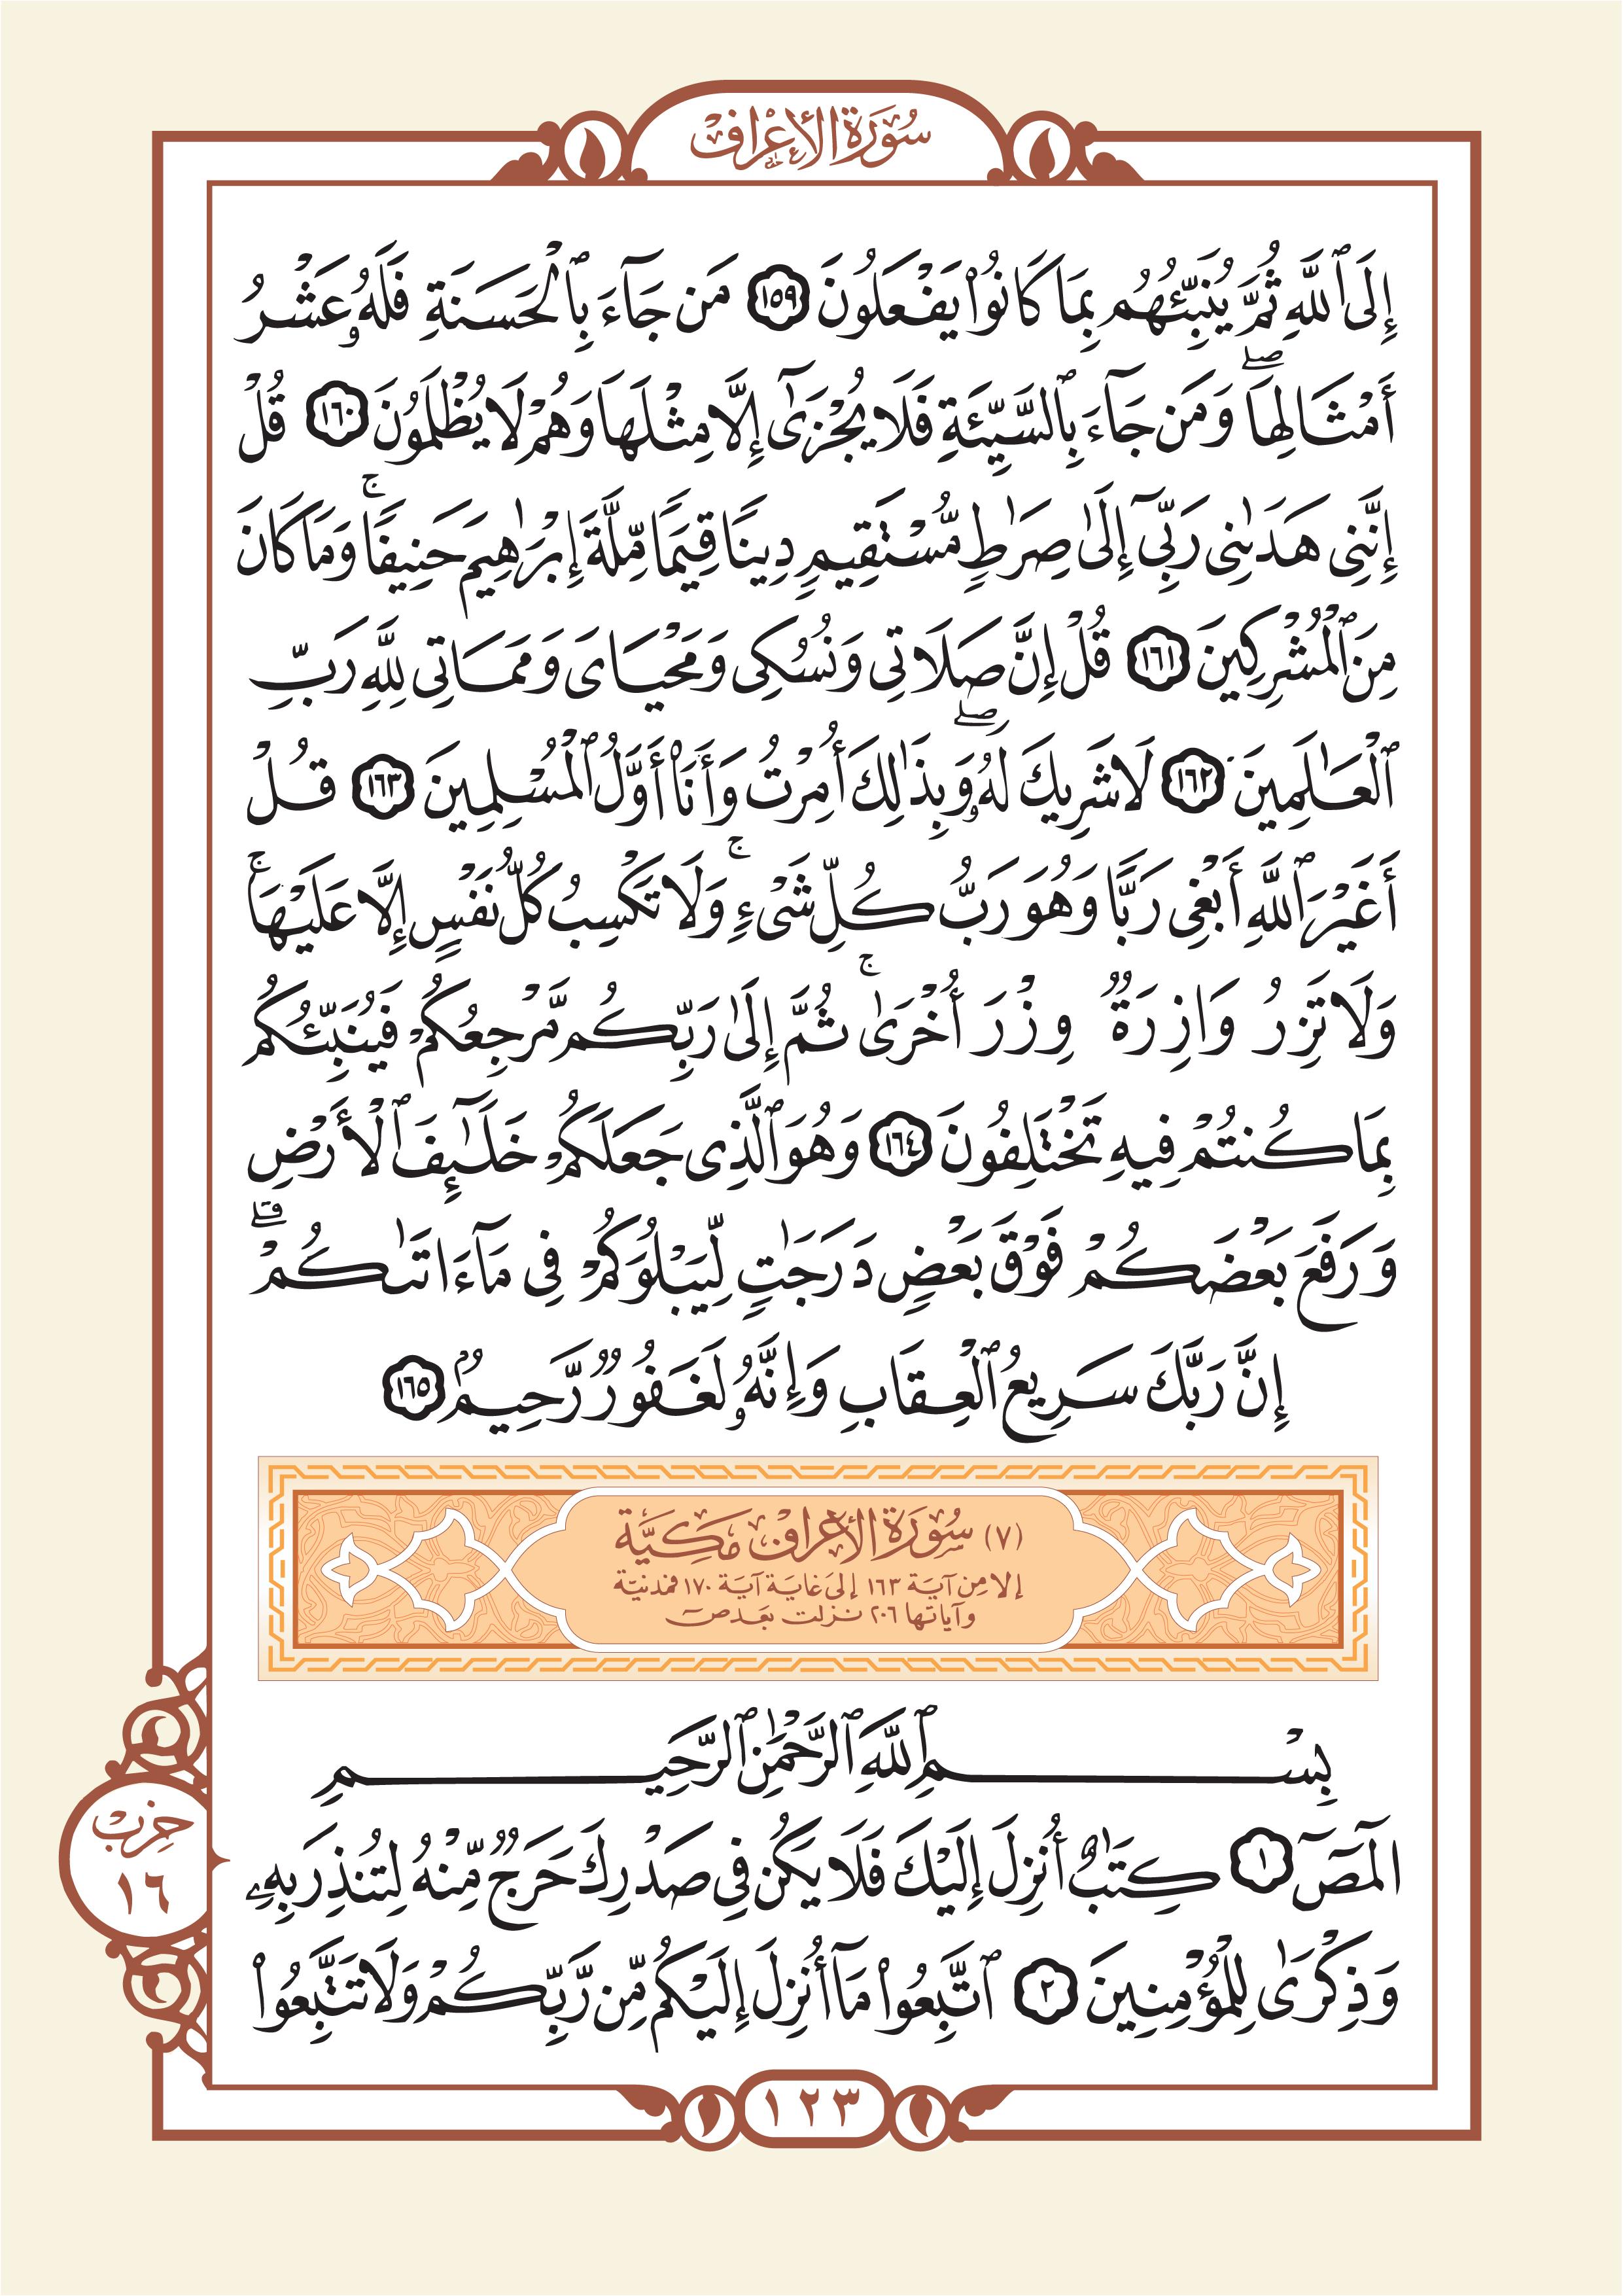 سُورَةُ الأَعْرَافِ
إِلَى ٱللَّهِ ثُمَّ يُنَبِّئُهُم بِمَا كَانُوا۟ يَفْعَلُونَ ١٥٩ مَن جَآءَ بِٱلْحَسَنَةِ فَلَهُۥ عَشْرُ
أَمْثَالِهَاۖ وَمَن جَآءَ بِٱلسَّيِّئَةِ فَلَا يُجْزَىٰٓ إِلَّا مِثْلَهَا وَهُمْ لَا يُظْلَمُونَ ١٦٠ قُلْ
إِنَّنِى هَدَىٰنِى رَبِّىٓ إِلَىٰ صِرَٰطٍ مُّسْتَقِيمٍ دِينًا قِيَمًا مِّلَّةَ إِبْرَٰهِيمَ حَنِيفًاۚ وَمَا كَانَ
مِنَ ٱلْمُشْرِكِينَ ١٦١ قُلْ إِنَّ صَلَاتِى وَنُسُكِى وَمَحْيَاىَ وَمَمَاتِى لِلَّهِ رَبِّ
ٱلْعَـٰلَمِينَ ١٦٢ لَا شَرِيكَ لَهُۥۖ وَبِذَٰلِكَ أُمِرْتُ وَأَنَا۠ أَوَّلُ ٱلْمُسْلِمِينَ ١٦٣ قُلْ
أَغَيْرَ ٱللَّهِ أَبْغِى رَبًّا وَهُوَ رَبُّ كُلِّ شَىْءٍۚ وَلَا تَكْسِبُ كُلُّ نَفْسٍ إِلَّا عَلَيْهَاۚ
وَلَا تَزِرُ وَازِرَةٌ وِزْرَ أُخْرَىٰۚ ثُمَّ إِلَىٰ رَبِّكُم مَّرْجِعُكُمْ فَيُنَبِّئُكُم
بِمَا كُنتُمْ فِيهِ تَخْتَلِفُونَ ١٦٤ وَهُوَ ٱلَّذِى جَعَلَكُمْ خَلَـٰٓئِفَ ٱلْأَرْضِ
وَرَفَعَ بَعْضَكُمْ فَوْقَ بَعْضٍ دَرَجَـٰتٍ لِّيَبْلُوَكُمْ فِى مَآ ءَاتَىٰكُمْۗ
إِنَّ رَبَّكَ سَرِيعُ ٱلْعِقَابِ وَإِنَّهُۥ لَغَفُورٌ رَّحِيمٌۢ ١٦٥
(٧) سُورَةُ الأَعْرَافِ مَكِيَّة
إلا مِن آيَة ١٦٣ إلى غَايَة آيَة ١٧٠ فمدنيّة
وآياتها ٢٠٦ نزلت بعَد صٓ
بِسْمِ ٱللَّهِ ٱلرَّحْمَـٰنِ ٱلرَّحِيمِ
الٓمٓصٓ ١ كِتَـٰبٌ أُنزِلَ إِلَيْكَ فَلَا يَكُن فِى صَدْرِكَ حَرَجٌ مِّنْهُ لِتُنذِرَ بِهِۦ
وَذِكْرَىٰ لِلْمُؤْمِنِينَ ٢ ٱتَّبِعُوا۟ مَآ أُنزِلَ إِلَيْكُم مِّن رَّبِّكُمْ وَلَا تَتَّبِعُوا۟
حِزْب
١٦
١٢٣